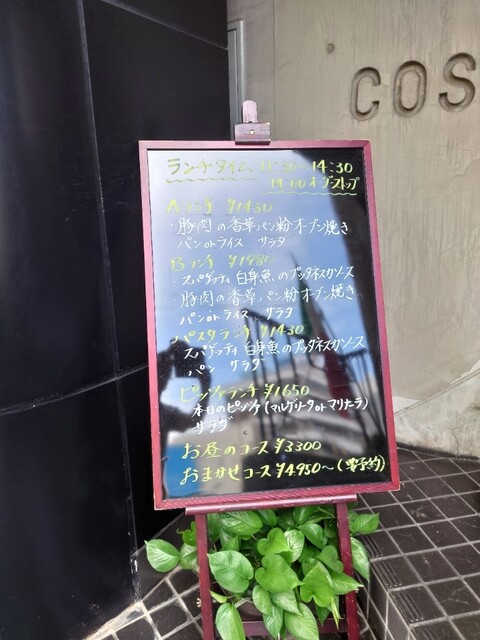 COS
ランチタイム 11:30~14:30
14:00オーダーストップ
Aランチ ¥1430
・豚肉の香草パン粉オーブン焼き
パンorライス サラダ
Bランチ ¥1980
・スパゲッティ 白身魚のプッタネスカソース
・豚肉の香草パン粉オーブン焼き
パンorライス サラダ
パスタランチ ¥1430
スパゲッティ 白身魚のプッタネスカソース
パン サラダ
ピッツァランチ ¥1650
本日のピッツァ(マルゲリータorマリナーラ)
サラダ
お昼のコース ¥3300
おまかせコース ¥4,950~(要予約)